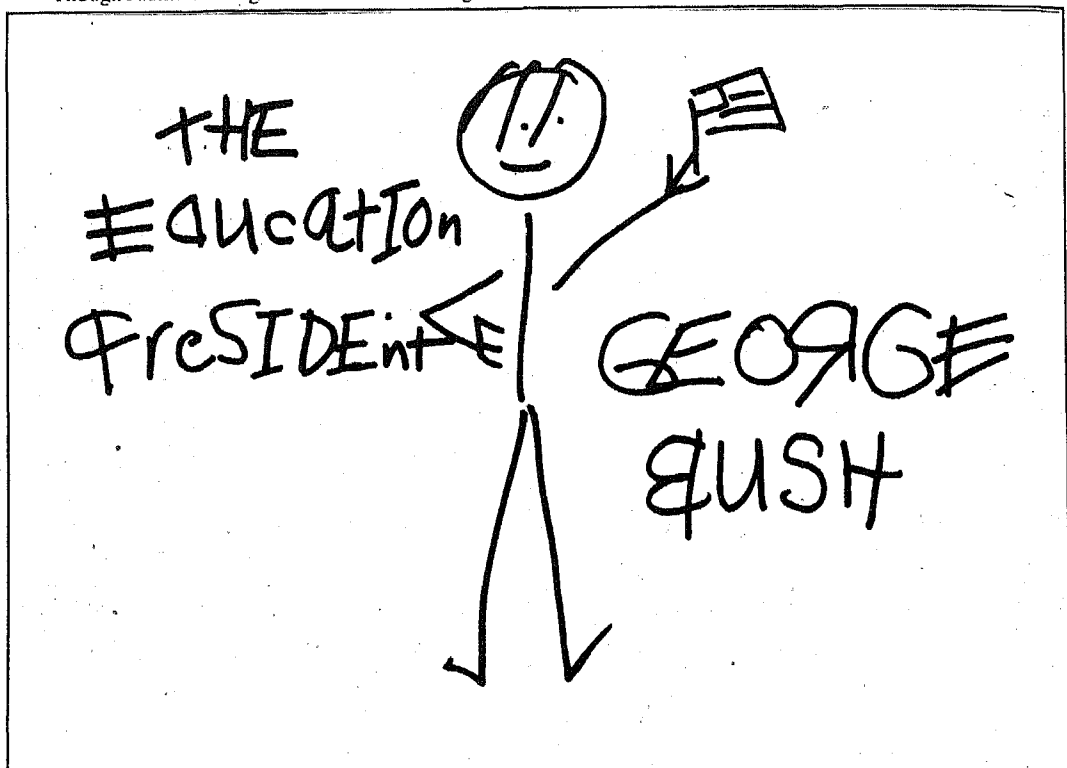 THE
EducatIon
PreSIDEint
GEORGE
BUSH